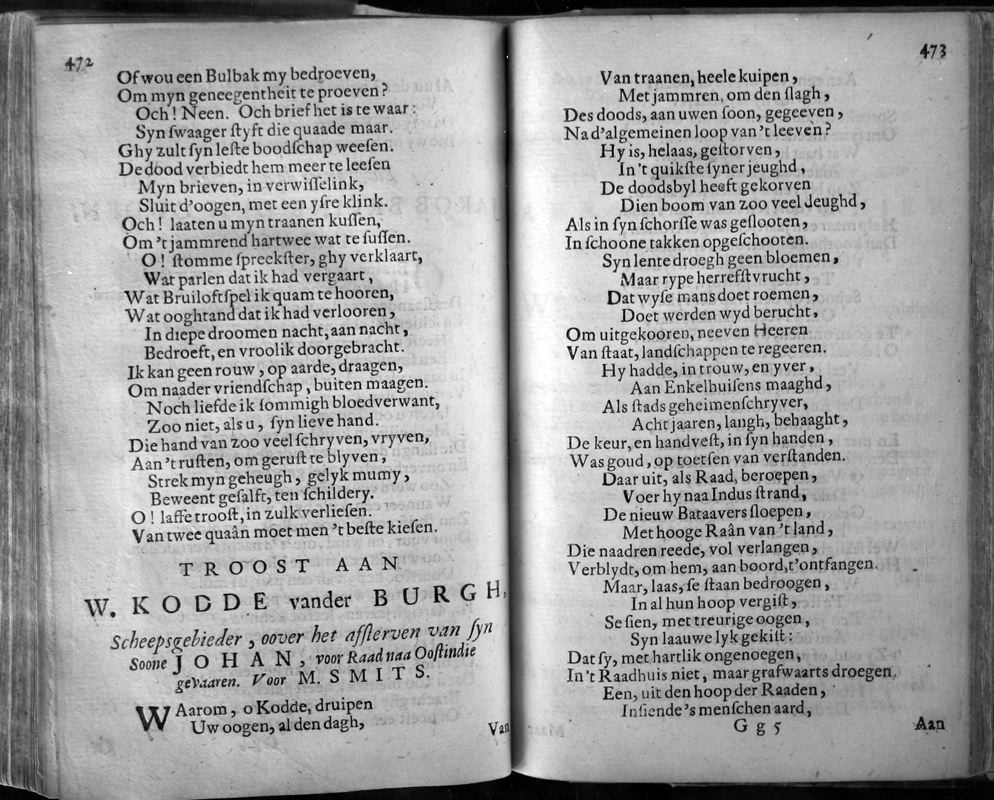 472
Of wou een Bulbak my bedroeven,
Om myn geneegentheit te proeven?
Och! Neen. Och brief het is te waar:
Syn ſwaager ſtyft die quaade maar.
Ghy zult ſyn leſte boodſchap weeſen.
De dood verbiedt hem meer te leeſen
Myn brieven, in verwiſſelink,
Sluit d'oogen, met een yſre klink.
Och! laaten u myn traanen kuſſen,
Om 't jammrend hartwee wat te ſuſſen.
O! ſtomme ſpreekſter, ghy verklaart,
Wat parlen dat ik had vergaart,
Wat Bruiloftſpel ik quam te hooren,
Wat ooghtrand dat ik had verlooren,
In diepe droomen nacht, aan nacht,
Bedroeft, en vroolik doorgebracht.
Ik kan geen rouw, op aarde, draagen,
Om naader vriendſchap, buiten maagen.
Noch liefde ik ſommigh bloedverwant,
Zoo niet, als u, ſyn lieve hand.
Die hand van zoo veel ſchryven, vryven,
Aan 't ruſten, om geruſt te blyven,
Strek myn geheugh, gelyk mumy,
Beweent geſalft, ten ſchildery.
O! laffe trooſt, in zulk verlieſen.
Van twee quaân moet men 't beſte kieſen.
TROOST AAN
W. KODDE vander BURGH,
Scheepsgebieder, oover het afſterven van ſyn
Soone JOHAN, voor Raad naa Ooſtindie
gevaaren. Voor M. SMITS.
WAarom, o Kodde, druipen
Uw oogen, al den dagh,
Van
473
Van traanen, heele kuipen,
Met jammren, om den ſlagh,
Des doods, aan uwen ſoon, gegeeven,
Na d'algemeinen loop van 't leeven?
Hy is, helaas, geſtorven,
In 't quikſte ſyner jeughd,
De doodsbyl heeft gekorven
Dien boom van zoo veel Jeughd,
Als in ſyn ſchorſſe was geſlooten,
In ſchoone takken opgeſchooten.
Syn lente droegh geen bloemen,
Maar rype herrefſtvrucht,
Dat wyſe mans doet roemen,
Doet werden wyd berucht,
Om uitgekooren, neeven Heeren
Van ſtaat, landſchappen te regeeren.
Hy hadde, in trouw, en yver,
Aan Enkelhuiſens maaghd,
Als ſtads geheimenſchryver,
Acht jaaren, langh, behaaght,
De keur, en handveſt, in ſyn handen,
Was goud, op toetſen van verſtanden.
Daar uit, als Raad, beroepen,
Voer hy naa Indus ſtrand,
De nieuw Bataavers ſloepen,
Met hooge Raân van 't land,
Die naadren reede, vol verlangen,
Verblydt, om hem, aan boord, t'ontfangen.
Maar, laas, ſe ſtaan bedroogen,
In al hun hoop vergiſt,
Se ſien, met treurige oogen,
Syn laauwe lyk gekiſt:
Dat ſy, met hartlik ongenoegen,
In 't Raadhuis niet, maar grafwaarts droegen.
Een, uit den hoop der Raaden,
Inſiende 's menſchen aard,
Gg 5
Aan